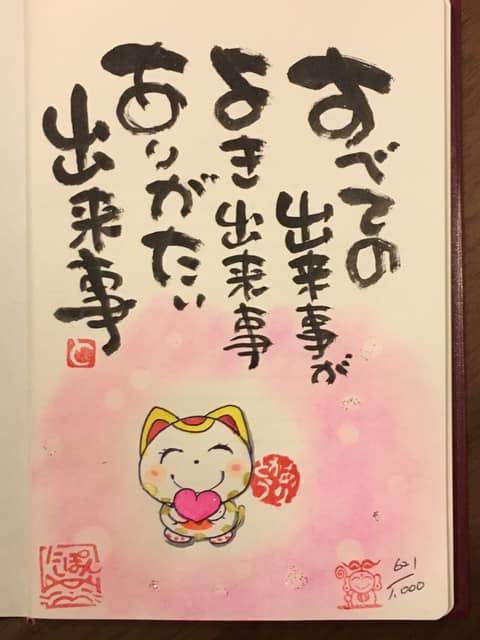 すべての
出来事が
よき出来事
ありがたい
出来事
と
ありがとう
にっぽん
621/1,000